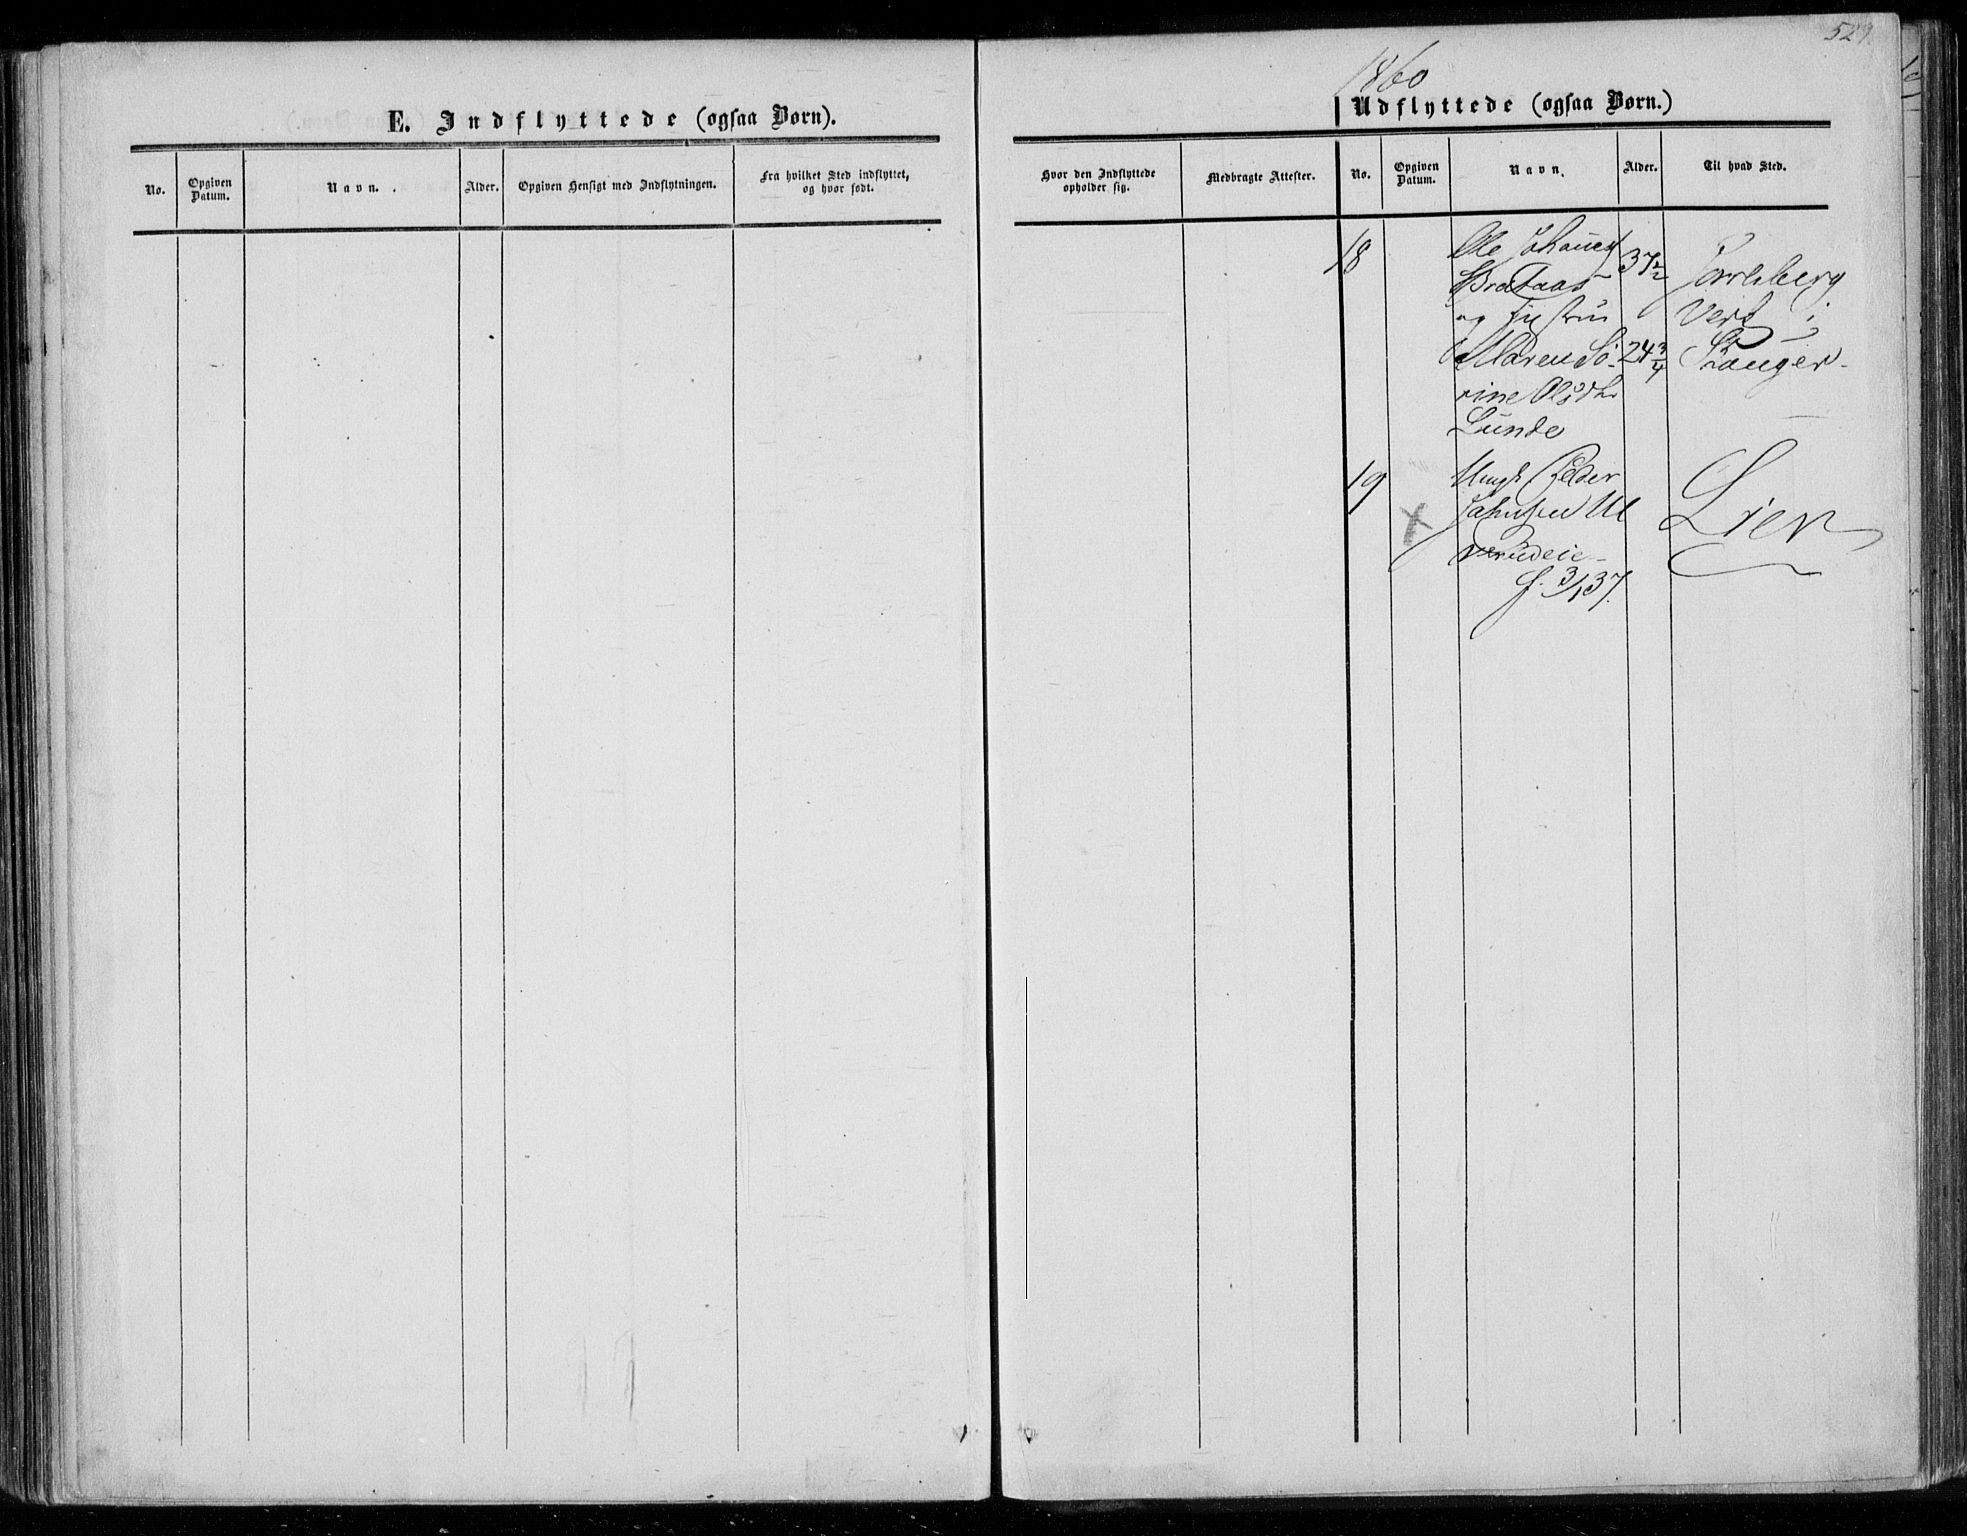 E. Indflyttede (ogsaa Børn).
No.
Opgiven Datum.
Navn.
Alder.
Opgiven Hensigt med Indflytningen.
Fra hvilket Sted indflyttet, og hvor født.
1860
Udflyttede (ogsaa Børn.)
Hvor den Indflyttede opholder sig.
Medbragte Attester.
No.
Opgiven Datum.
Navn.
Alder.
Til hvad Sted.
18
Ole Johannes
Brataas
og
Maren So-
rine Olsdtr
Lunde
37½
24¾
Jarlsberg
Verk i
19
Ungk Peder
f. 3/1 37.
Lier